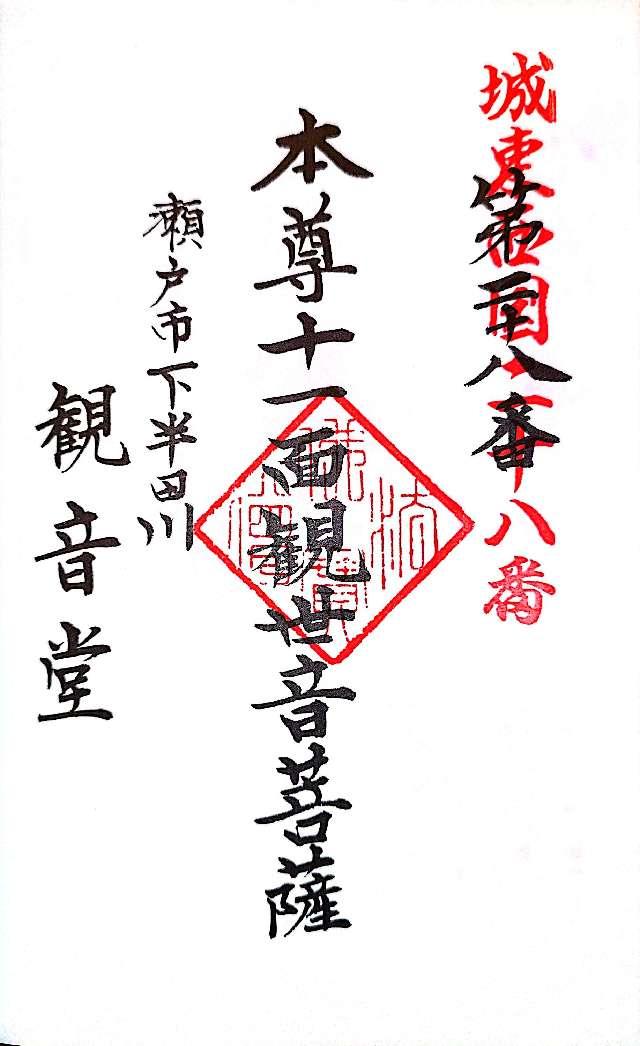 城東西国二十八番
第二十八番
本尊十一面観世音菩薩
瀬戸市下半田川
観音堂